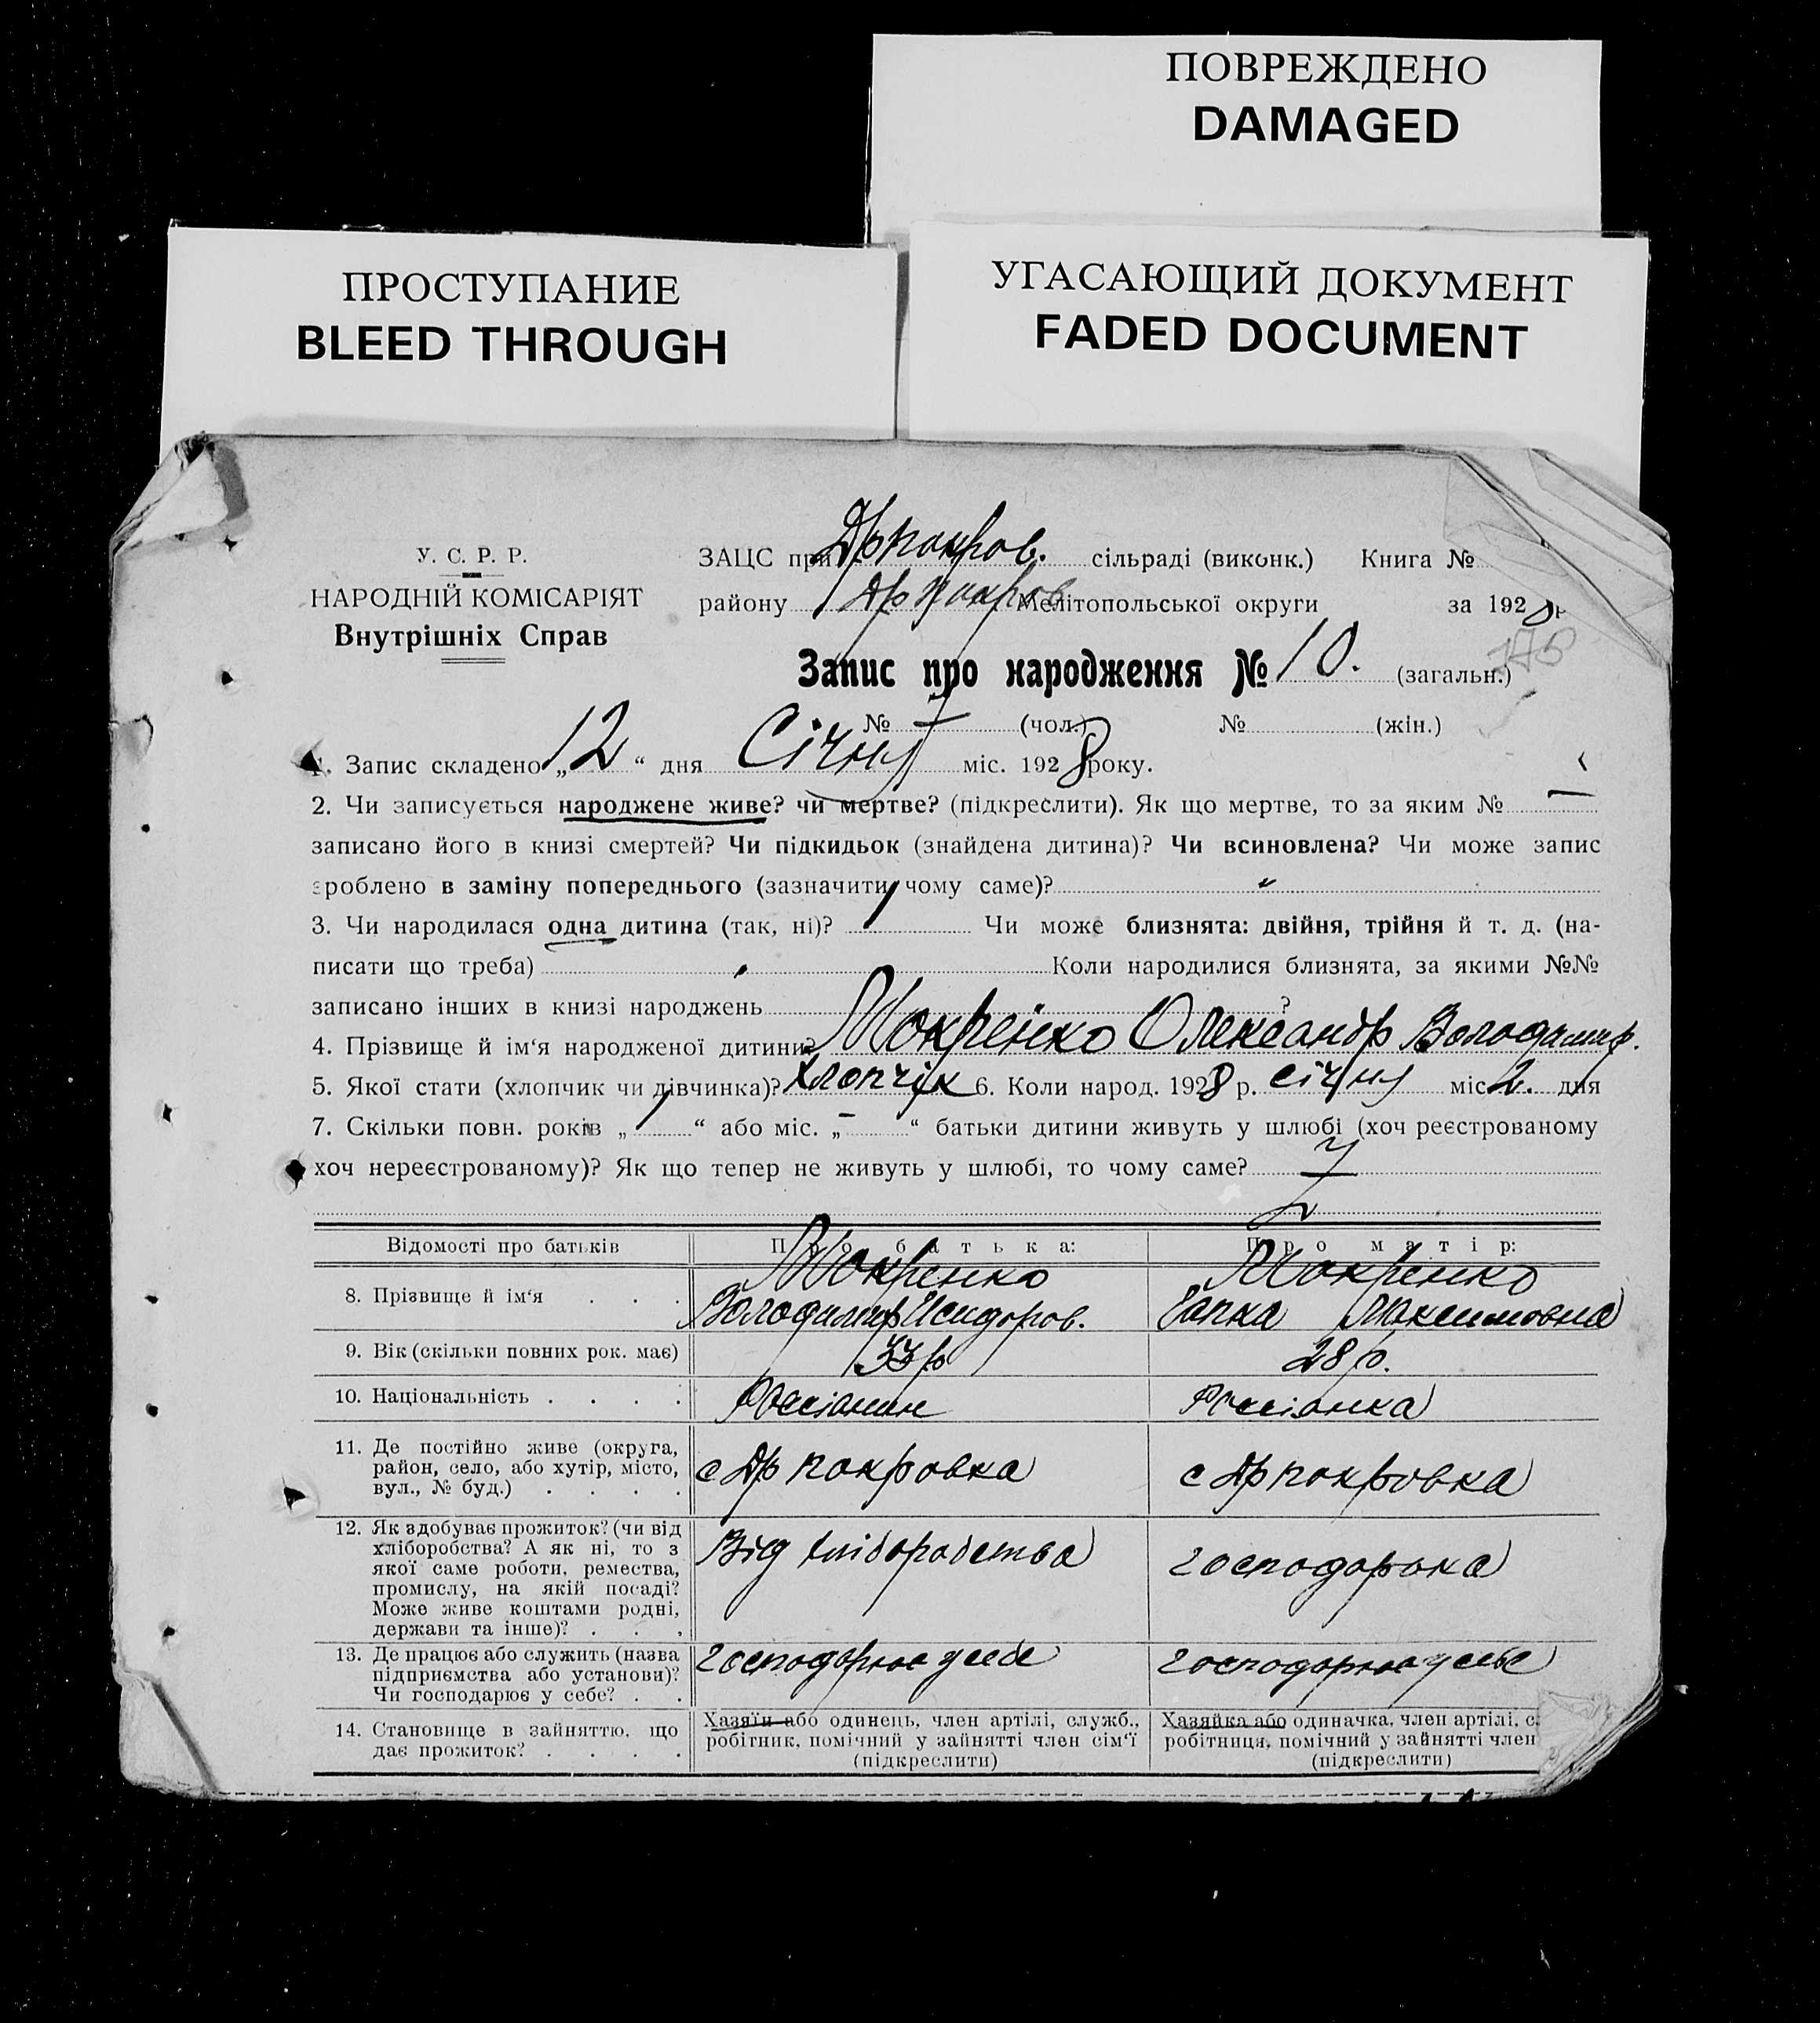 ПОВРЕЖДЕНО
DAMAGED
ПРОСТУПАНИЕ
BLEED THROUGH
УГАСАЮЩИЙ ДОКУМЕНТ
FADED DOCUMENT
У. С. Р. Р.
НАРОДНІЙ КОМІСАРІЯТ
Внутрішніх Справ
ЗАЦС при Др покров. сільраді (виконк.) Книга №
району Др покров Мелітопольської округи за 1928 р
175
Запис про народження № 10. (загальн.)
№ 7 (чол.) № (жін.)
1. Запис складено „12“ дня Січня міс. 1928 року.
2. Чи записується народжене живе? чи мертве? (підкреслити). Як що мертве, то за яким № —
записано його в книзі смертей? Чи підкидьок (знайдена дитина)? Чи всиновлена? Чи може запис
зроблено в заміну попереднього (зазначити чому саме)? "
3. Чи народилася одна дитина (так, ні)? 1 Чи може близнята: двійня, трійня й т. д. (на-
писати що треба) Коли народилися близнята, за якими №№
записано інших в книзі народжень ?
4. Прізвище й ім‘я народженої дитини? Мокренко Олександр Володимир.
5. Якої стати (хлопчик чи дівчинка)? Хлопчік 6. Коли народ. 1928 р. січня міс 2. дня
7. Скільки повн. років „ “ або міс. „–“ батьки дитини живуть у шлюбі (хоч реєстрованому
хоч нереєстрованому)? Як що тепер не живуть у шлюбі, то чому саме?
Відомості про батьків Про батька: Про матір:
8. Прізвище й ім‘я . . . Мокренко Володимир Исидоров. Мокренко Гапка Максимовна
9. Вік (скільки повних рок. має) 33 р 28 р.
10. Національність . . . . Россіанин Россіянка
11. Де постійно живе (округа, район, село, або хутір, місто, вул., № буд.) . . . . с Др покровка с Др покровка
12. Як здобуває прожиток? (чи від хліборобства? А як ні, то з якої саме роботи, ремества, промислу, на якій посаді? Може живе коштами родні, держави та інше)? . . . Від хліборобства господорока
13. Де працює або служить (назва підприємства або установи)? Чи господарює у себе? . . господорює у себе господорює у себе
14. Становище в зайняттю, що дає прожиток? . . . . Хазяїн або одинець, член артілі, служб., робітник, помічний у зайнятті член сім‘ї (підкреслити) Хазяйка або одиначка, член артілі, с робітниця, помічний у зайнятті член (підкреслити)